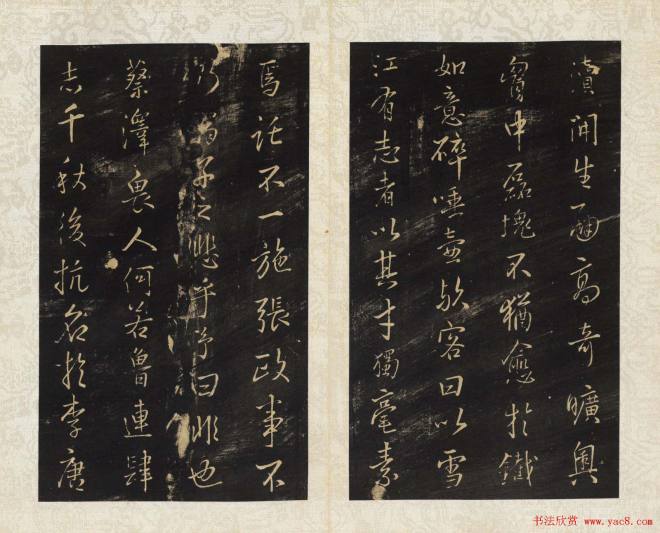 瀆開生面高奇曠奧
胷中磊塊不猶愈於鐵
如意碎唾壺歟客曰以雪
江有志者以其才獨毫素
焉託不一施張政事不
乃翁子之悲乎予曰非也
蔡澤衆人何若魯連肆
志千秋後抗名於李唐
书法欣赏 www.yac8.com